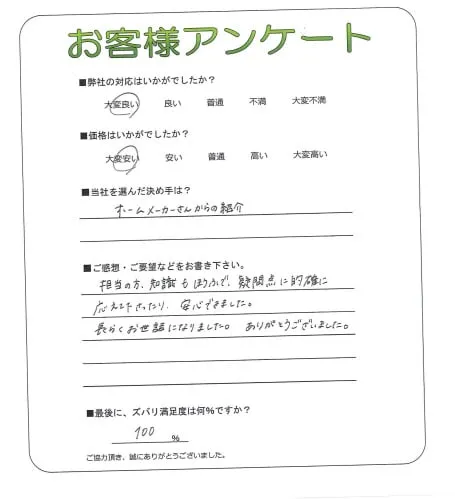 お客様アンケート
■弊社の対応はいかがでしたか?
大変良い 良い 普通 不満 大変不満
■価格はいかがでしたか?
大変安い 安い 普通 高い 大変高い
■当社を選んだ決め手は?
ホームメーカーさんからの紹介
■ご感想・ご要望などをお書き下さい。
担当の方、知識もほうふで、疑問点に的確に
応えて下さったり、安心できました。
長らくお世話になりました。 ありがとうございました。
■最後に、ズバリ満足度は何%ですか?
100 %
ご協力頂き、誠にありがとうございました。